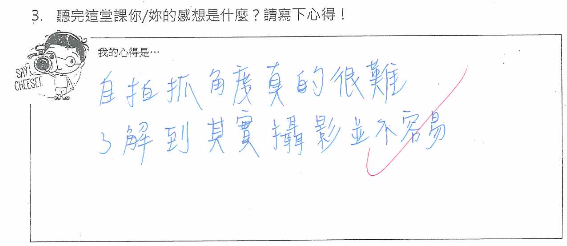 3. 聽完這堂課你/妳的感想是什麼？請寫下心得！
我的心得是…
SAY CHEESE!
自拍抓角度真的很難
了解到其實攝影並不容易